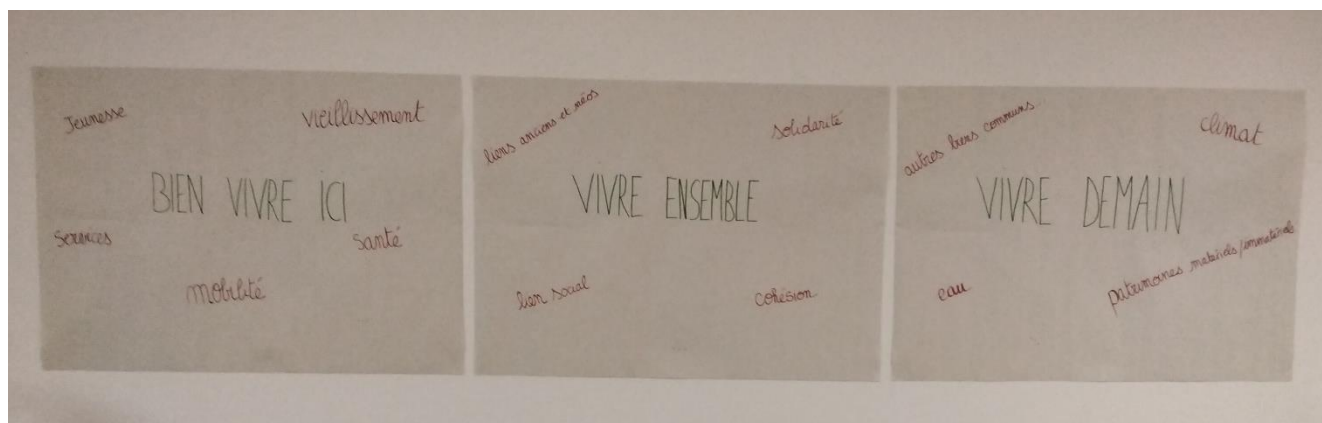 Jeunesse
vieillissement
BIEN VIVRE ICI
Services
Santé
mobilité
liens anciens et néos
solidarité
VIVRE ENSEMBLE
lien social
cohésion
autres biens communs...
climat
VIVRE DEMAIN
eau
patrimoines matériels/immatériels